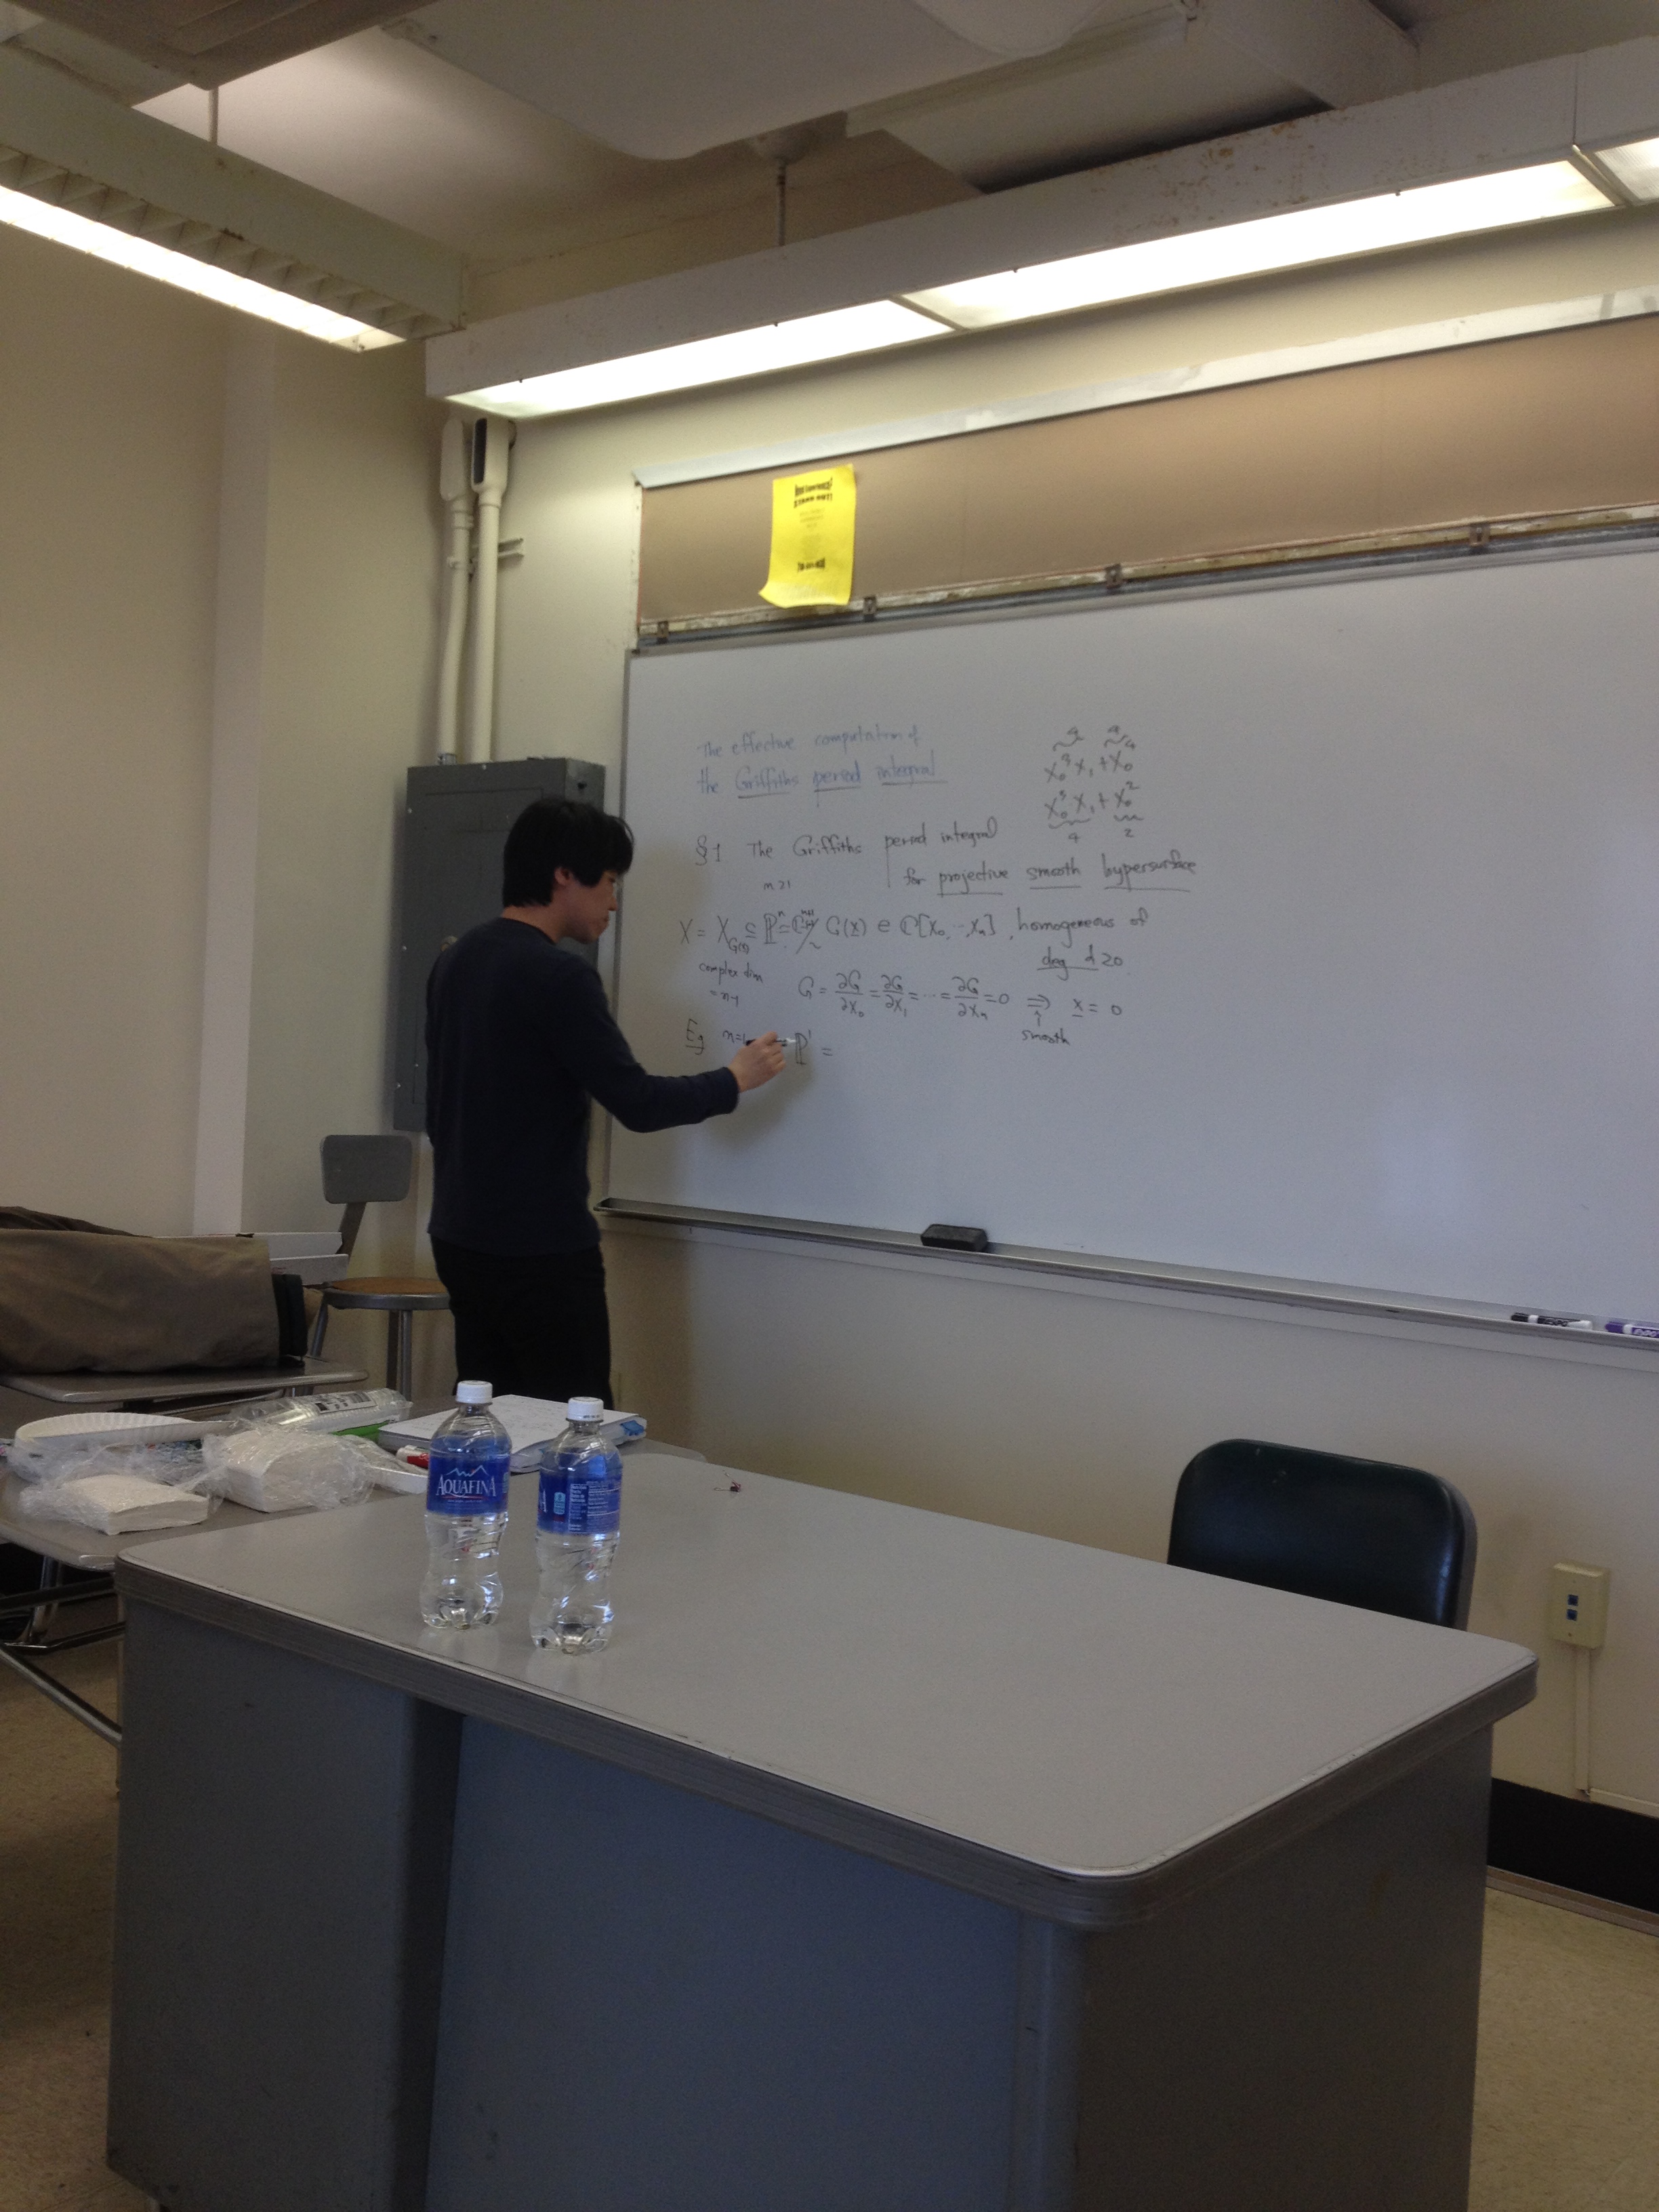 STAND OUT!
The effective computation of
the Griffiths period integral
4 4
X₀³X₁+X₀⁴
X₀³X₁+X₀²
4 2
§1 The Griffiths period integral
for projective smooth hypersurface
n≥1
X = X_{G(x)} ⊆ ℙⁿ = G(x) ∈ ℂ[X₀,⋯,Xₙ], homogeneous of
deg d≥0
complex dim
= n-1
G = ∂G/∂X₀ = ∂G/∂X₁ = ⋯ = ∂G/∂Xₙ = 0 ⇒ x = 0
↑
smooth
Eg n=1 ℙ¹ =
AQUAFINA